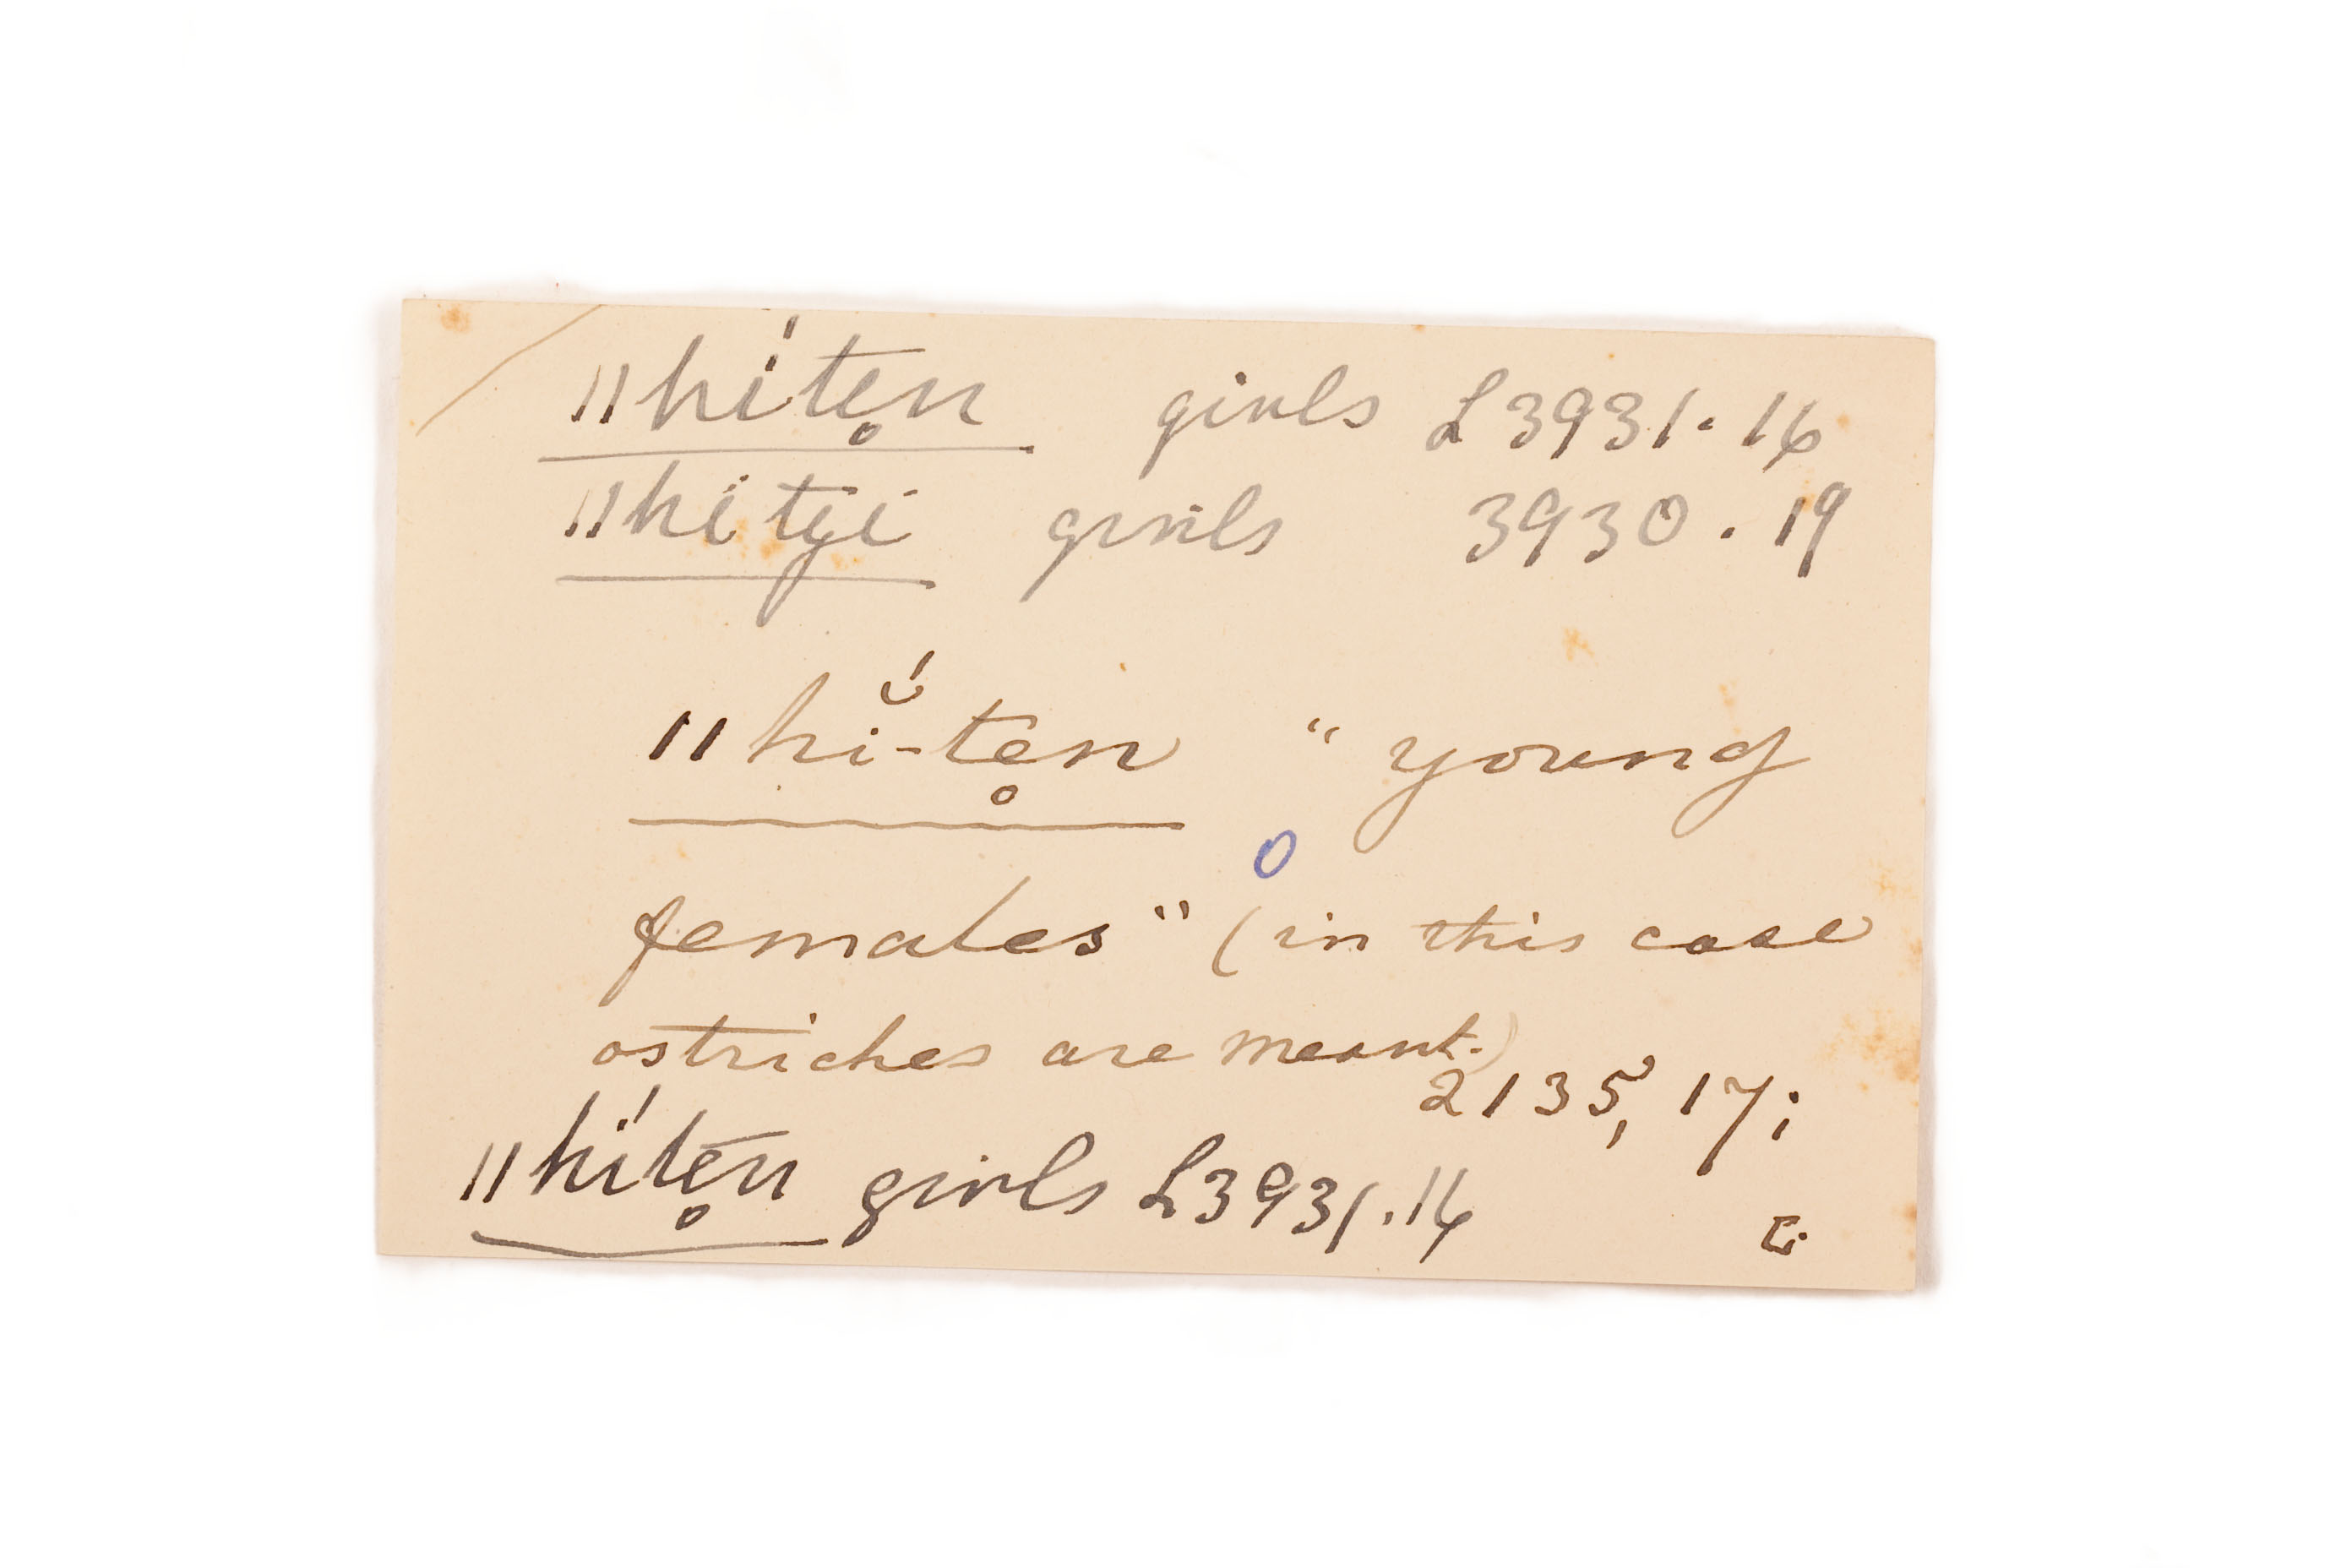 ǁhíte̥n girls L3931.16
ǁhityi girls 3930.19
ǁhĭ́-te̥n "young
females" (in this case
ostriches are meant.)
2135, 17;
ǁhíte̥n girls L3931.16